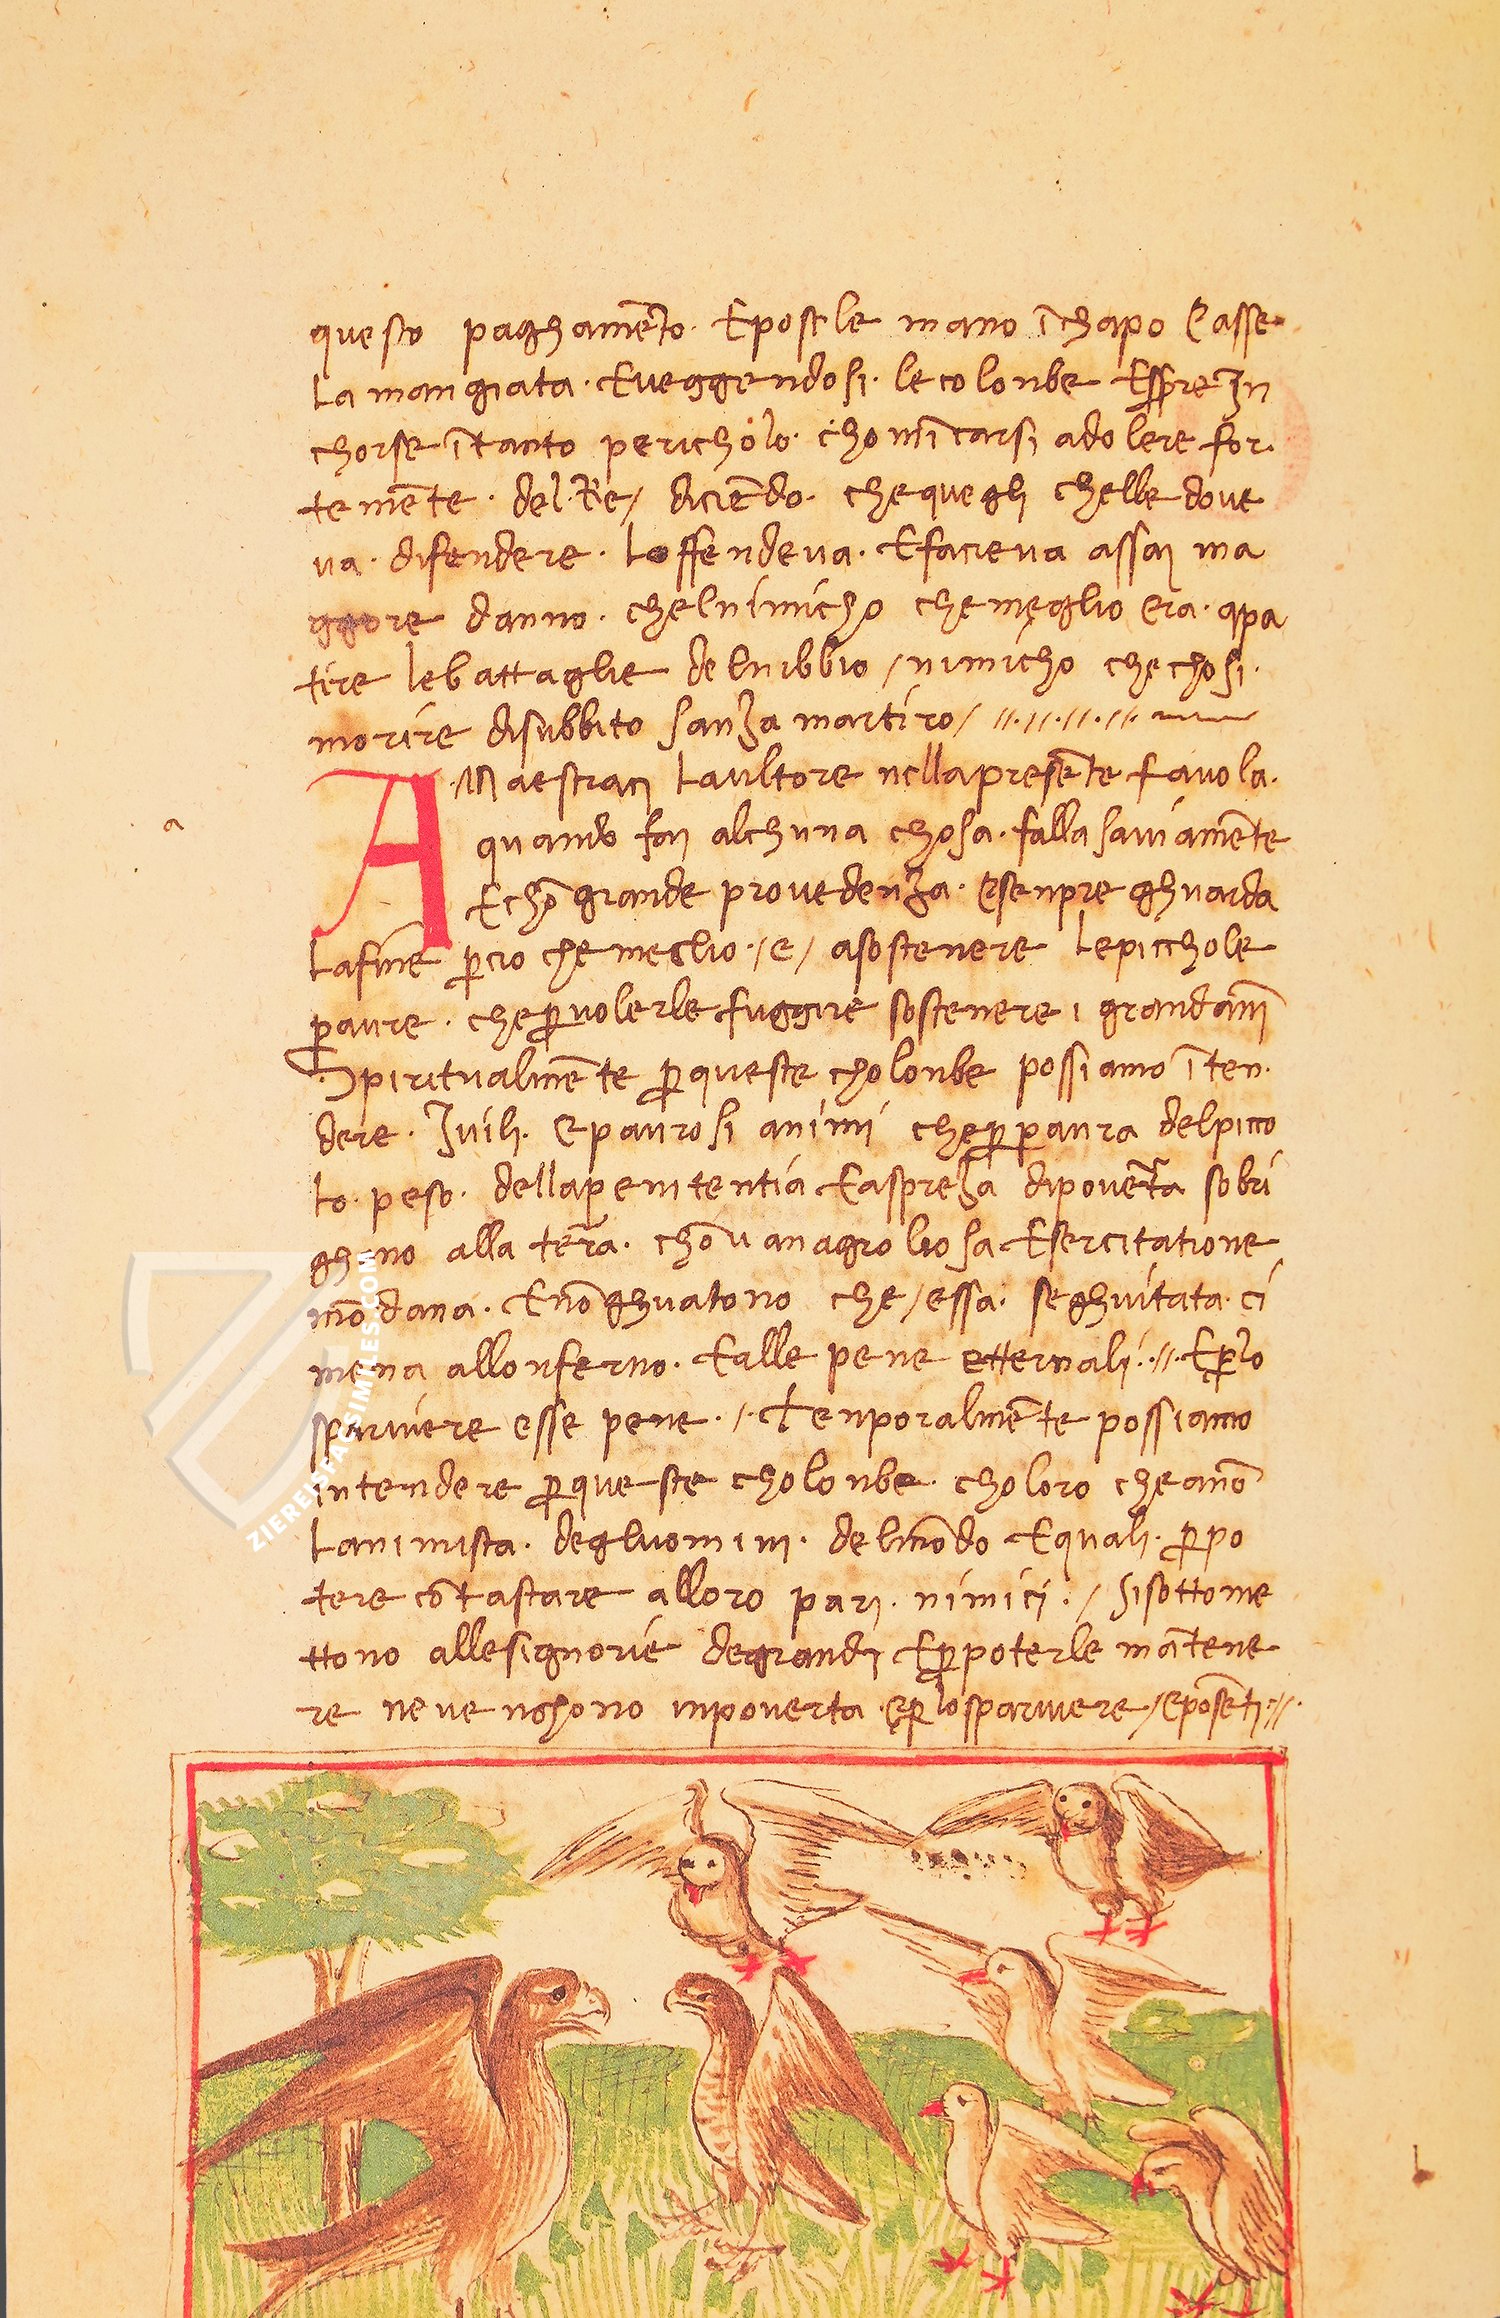 questo paghamēto. E postile mano ī chapo e asse
la mangiata. E veggendosi. le colonbe Essere in
chorse ī tanto pericholo. chominĉarsi adolere for.
temēte. del Re / diciēdo. che quegli chelle dove
va. difendere. loffendeva. E facieva assai ma
ggore danno. chelnimicho che meglio era. apa
tire le battaglie delnibbio / nimicho che chosi.
morire disubbito sanza martiro / //.//.//.//.
AMaestraci laultore nella presēte favola.
quando fai alchuna chosa. falla saviamēte
E chō grande provedenza. e senpre ghuarda
lafine p̄cio che meglio. /e/ asostenere le picchole
paure. che p̄ volerle fuggire sostenere i grandāni
Spiritualmēte p̄ queste cholonbe possiamo īten.
dere. I vili. e paurosi animi che p̄ paura del picco
lo. peso. della penitentia E aspreza dipoverta sobri
ghano alla terra. chō vanagroliosa Esercitatione
mōdana. E nō ghuatono che / essa. seghuitata. ci
mena allonferno. E alle pene etternali. // . E p̄ lo
sparviere esse pene. / . Tenporalmēte possiamo
intendere p̄ queste cholonbe. choloro che anō
lanimista. degluomini. del mōdo E quali. p̄ po
tere cōtastare alloro pari. nimici. / si sottome
ttono alle signorie de grandi E p̄ poterle mātene
re ne venghono inpoverta. e p̄ lo sparviere / e posēti. //.
a
ZIEREIS FACSIMILES.COM